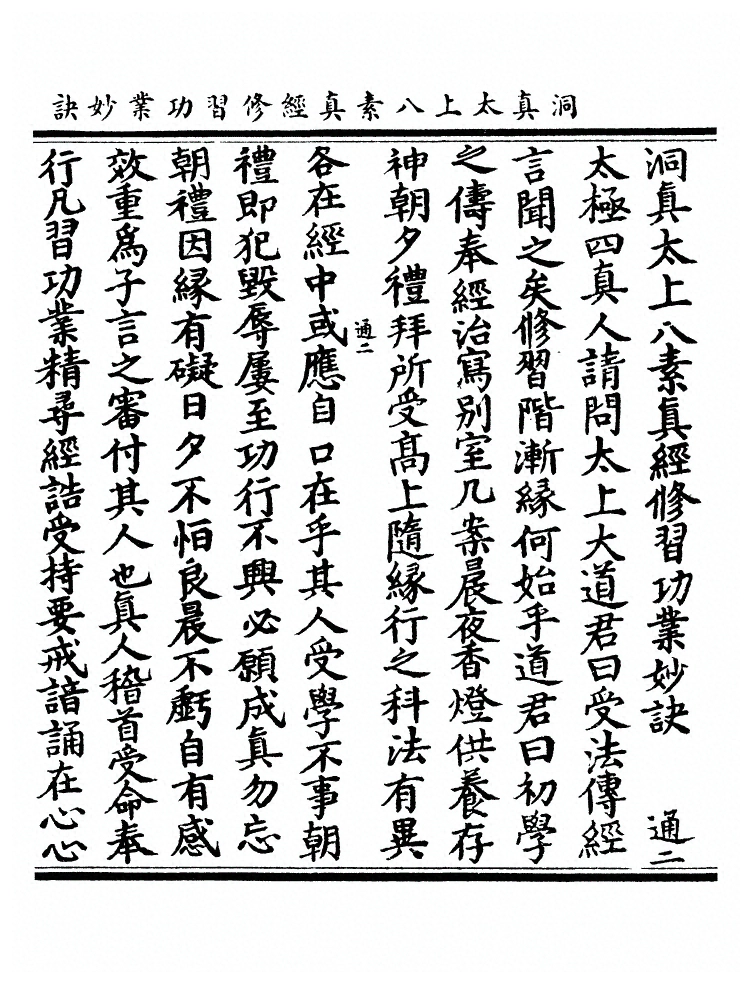 洞真太上八素真經修習功業妙訣
洞真太上八素真經修習功業妙訣　通二
太極四真人請問太上大道君曰受法傳經
言聞之矣修習階漸緣何始乎道君曰初學
之儔奉經治寫別室几案晨夜香燈供養存
神朝夕禮拜所受高上隨緣行之科法有異
通二
各在經中或應自口在乎其人受學不事朝
禮即犯毀辱屢至功行不興必願成真勿忘
朝禮因緣有礙日夕不怕良晨不虧自有感
效重為子言之審付其人也真人稽首受命奉
行凡習功業精尋經誥受持要戒諳誦在心心